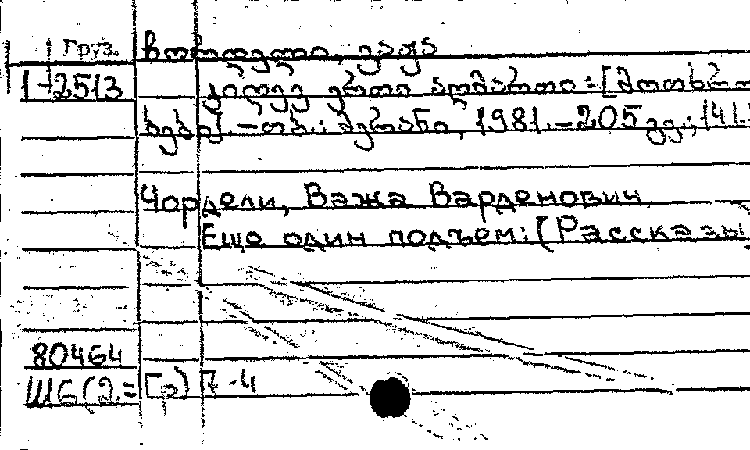 Груз. ჩორდელი, ვაჟა
1-2513 კიდევ ერთი აღმართი: [მოთხრო
ბები]. – თბ.: მერანი, 1981. – 205 გვ.; 
Чордели, Важа Варденович
Еще один подъем: [Рассказы
80464
Ш6(2=Гр)7-4